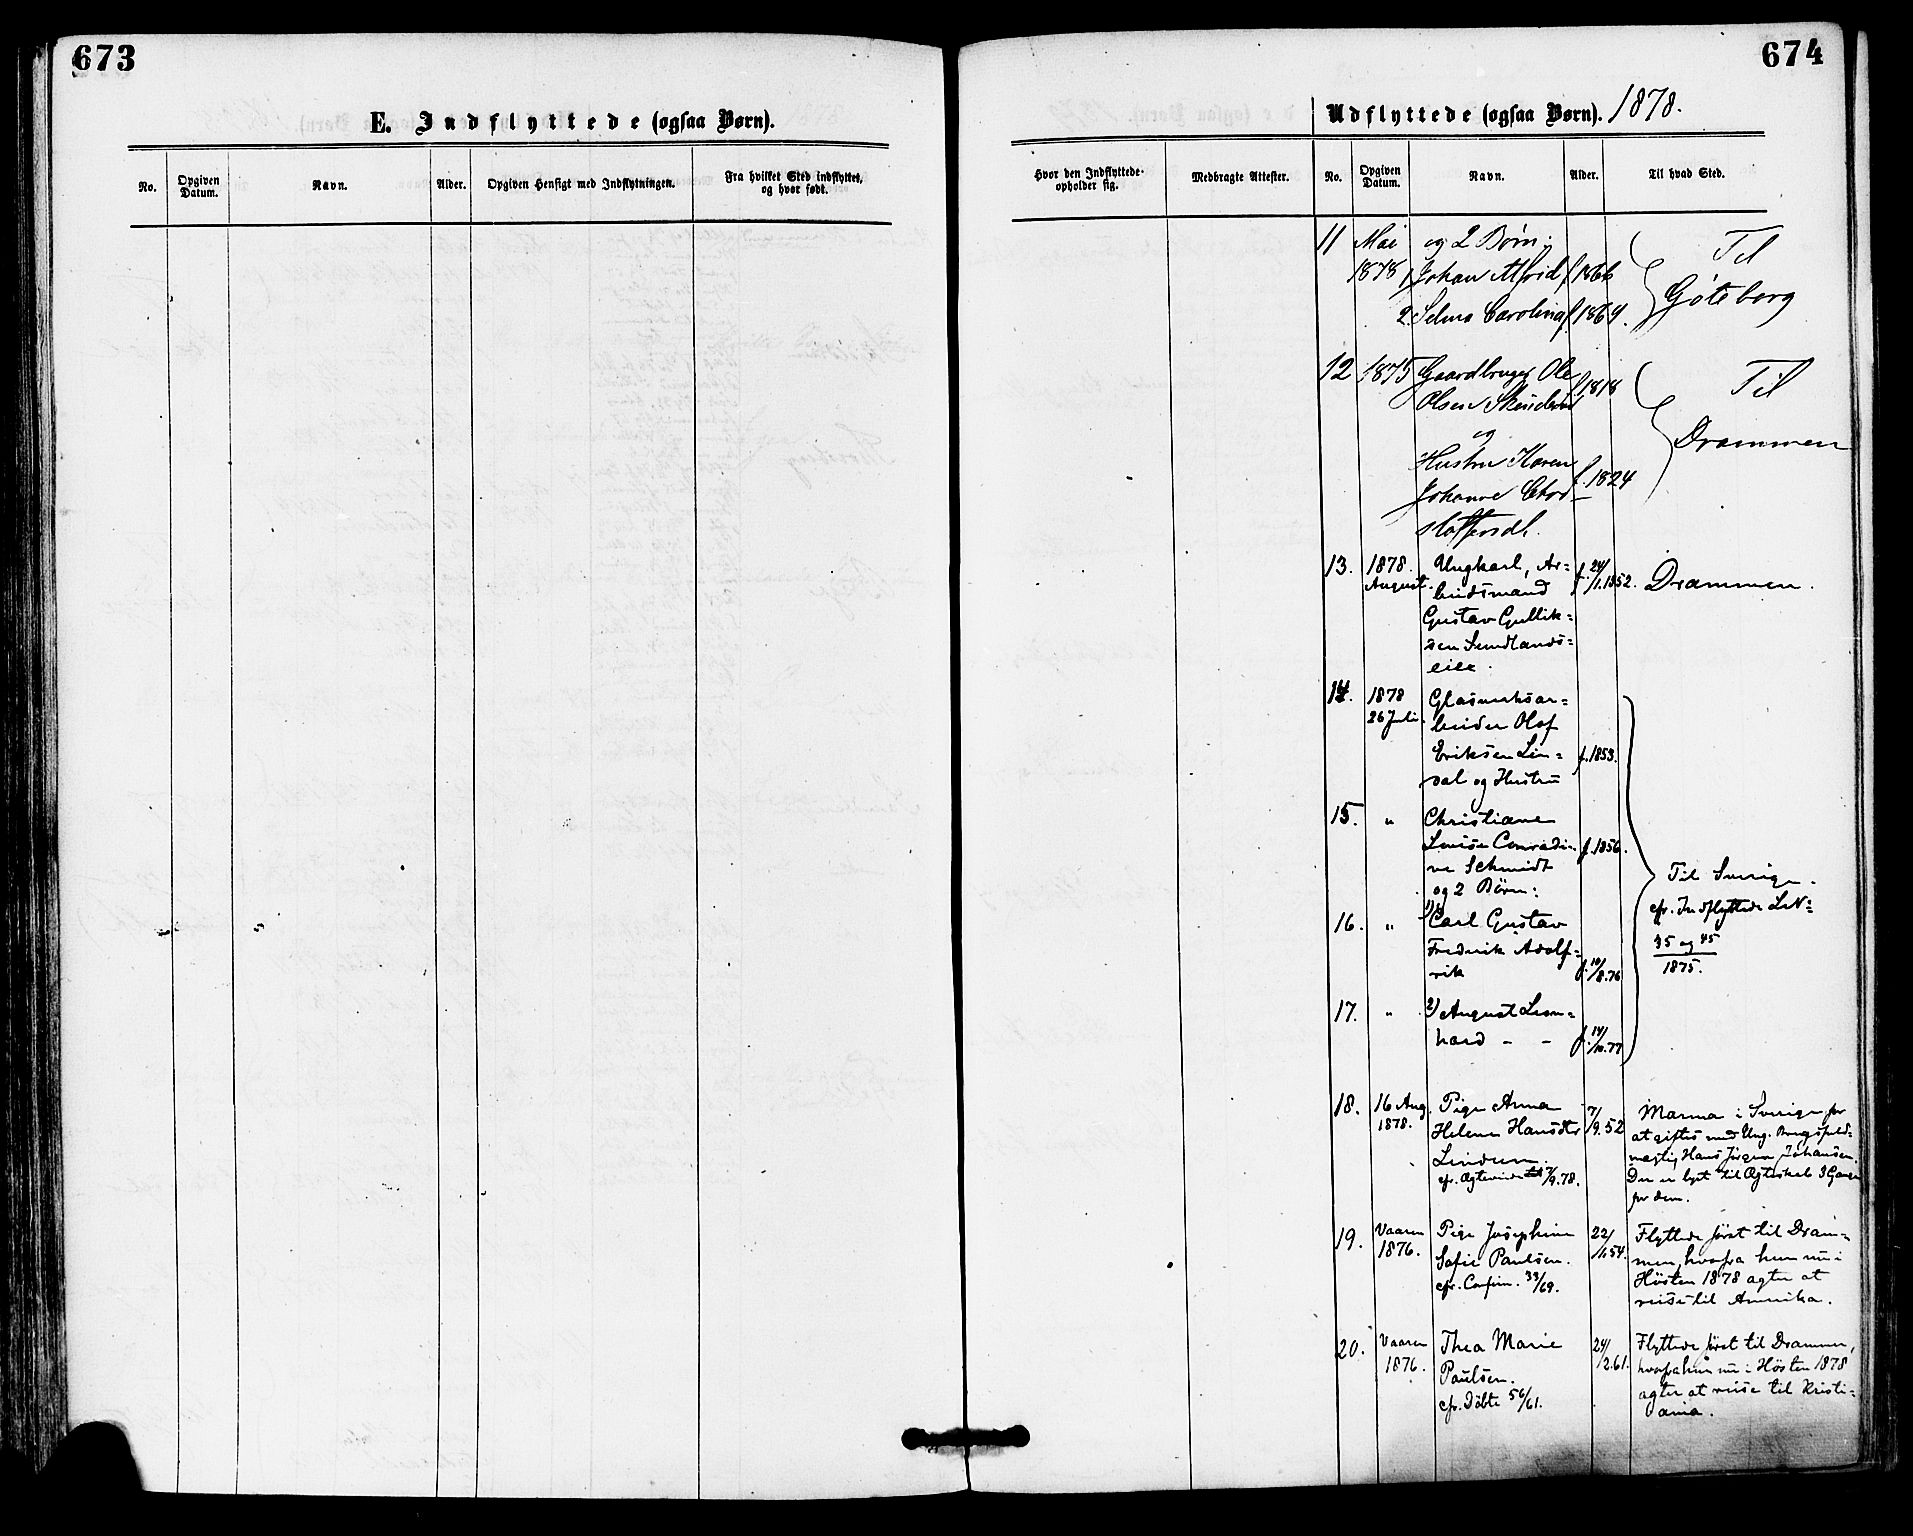 673
E. Indflyttede (ogsaa Børn).
No.
Opgiven
Datum.
Navn.
Alder.
Opgiven Hensigt med Indflytningen.
Fra hvilket Sted indflyttet,
og hvor født.
674
Udflyttede (ogsaa Børn). 1878.
Hvor den Indflyttede
opholder sig.
Medbragte Attester.
No.
Opgiven
Datum.
Navn.
Alder.
Til hvad Sted.
11 Mai og 2 Børn: Til
1878 1, Johan Alfrid f 1866 Göteborg
2. Selma Carolina f 1869.
12 1875 Gaardbruger Ole f 1818 Til
Olsen
og Drammen
Hustru Karen f. 1824
Johanne Chri
stoffersdt.
13. 1878. Ungkarl, Ar= f. 24/1.1852. Drammen.
August. beidsmand
Gustav Gullik=
sen Sundlands=
eie.
14. 1878 Glasverksar=
26 Juli. beider Olof
Eriksen Lin= f. 1853.
dal og Hustru
15. " Christiane
Lovise Conradi= f. 1856.
ne Schmidt
og 2 Børn:
Til Sverige.
cfr. Indflyttede LN=
35 og 45
1875.
16. " 1) Carl Gustav
Fredrik Adolf=
rik f. 10/8.76
17. " 2) August Leon=
hard - - f. 14/10.77
18. 16 Aug. Pige Anna 7/9.52 Marma i Sverige for
1878. Helene Hansdtr at giftes med Ung. Brugsfuld=
Lindum. mægtig Hans Jörgen Johansen.
cfr. Ægteviede 7/9.78. Der er lyst til Ægteskab 3 Gange
for dem.
19. Vaaren Pige Josephine 22/1.54. Flyttede först til Dram=
1876. Sofie Paulsen. men, hvorfra hun nu i
cfr. Confirm. 33/69. Hösten 1878 agter at
reise til Amerika.
20. Vaaren Thea Marie 24/2.61. Flyttede först til Drammen,
1876. Paulsen. hvorfra hun nu i Hösten 1878
cfr. Döbte 56/61. agter at reise til Kristi=
ania.